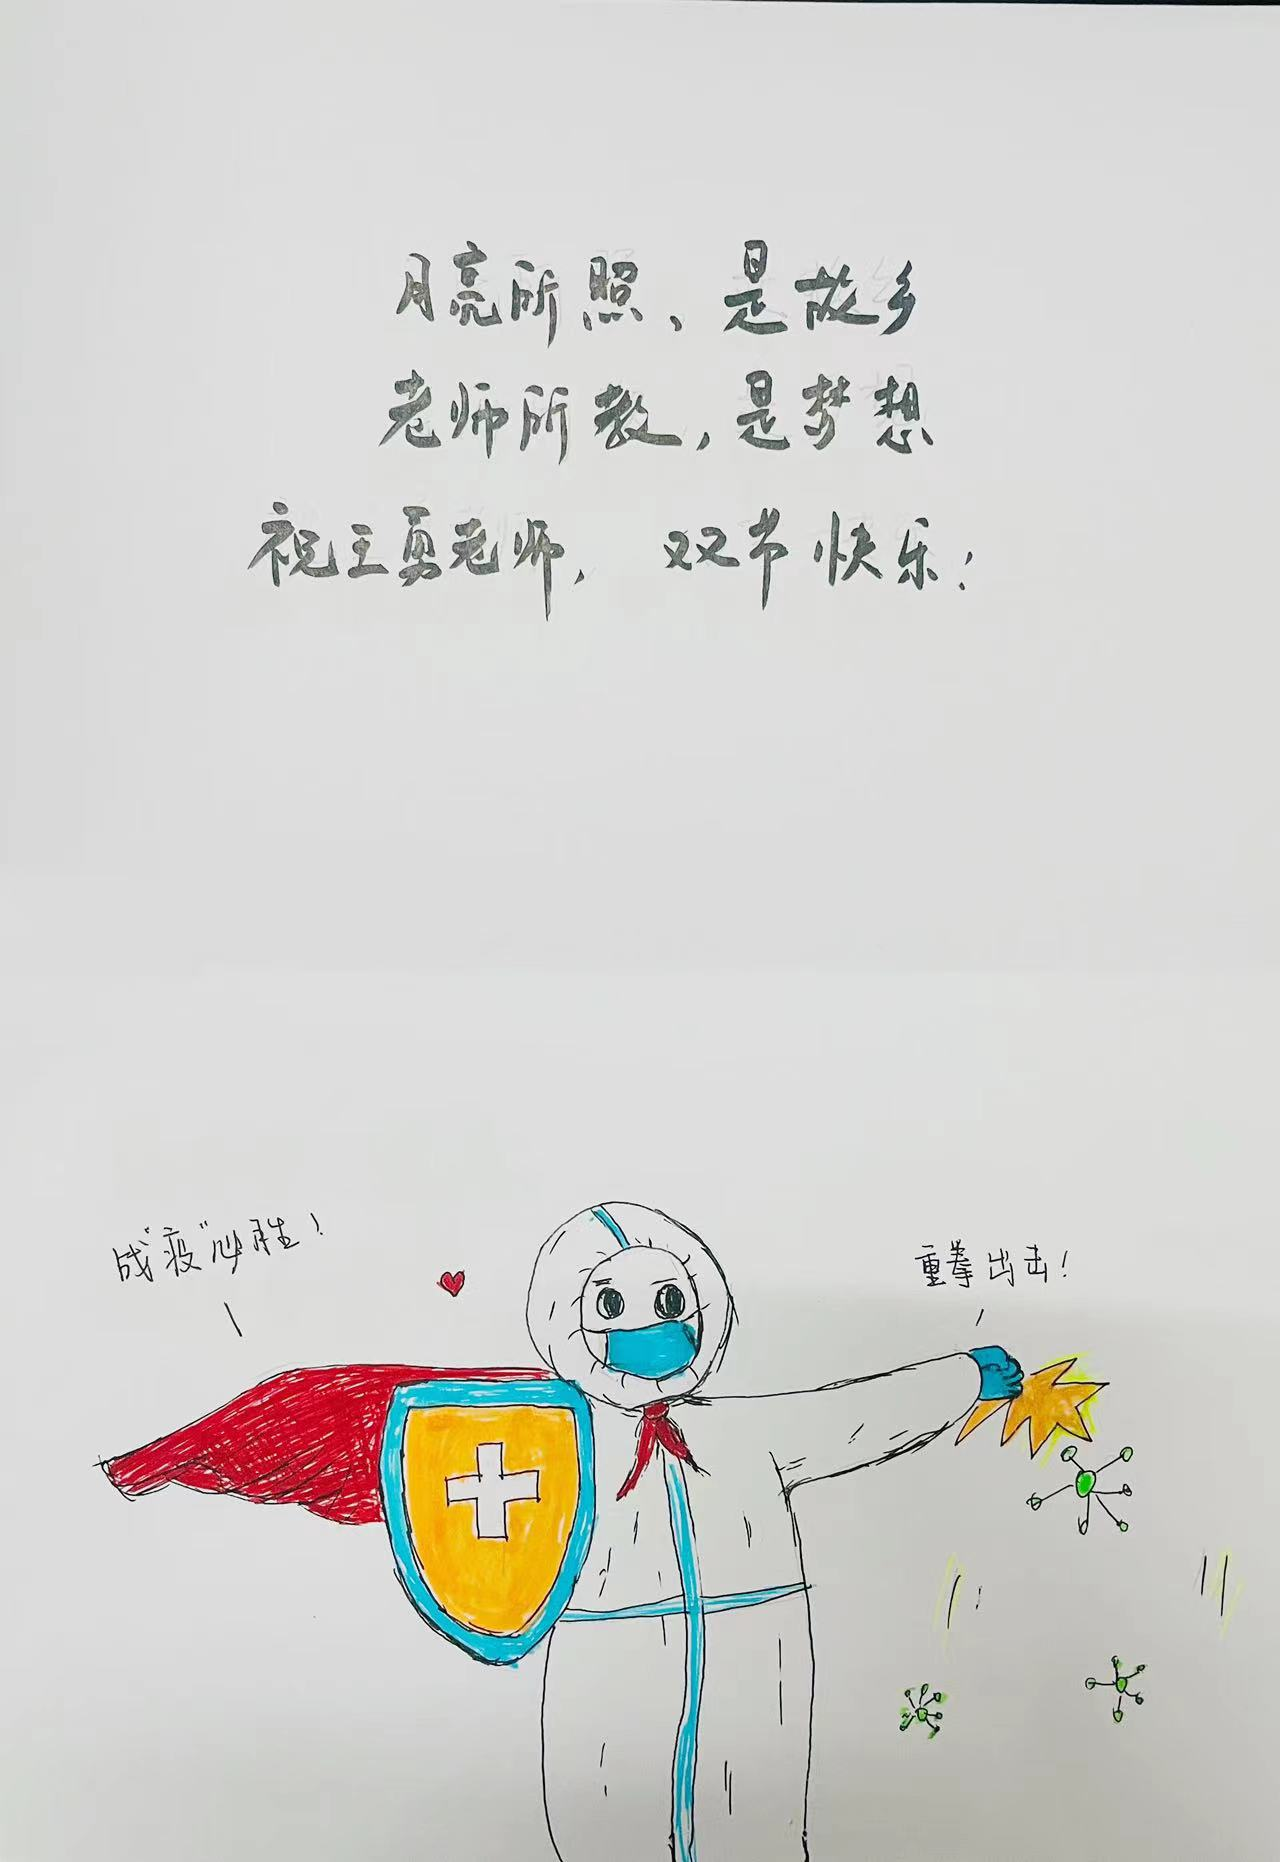 月亮所照、是故乡
老师所教,是梦想
祝王勇老师, 双节快乐!
战"疫"必胜!
重拳出击!